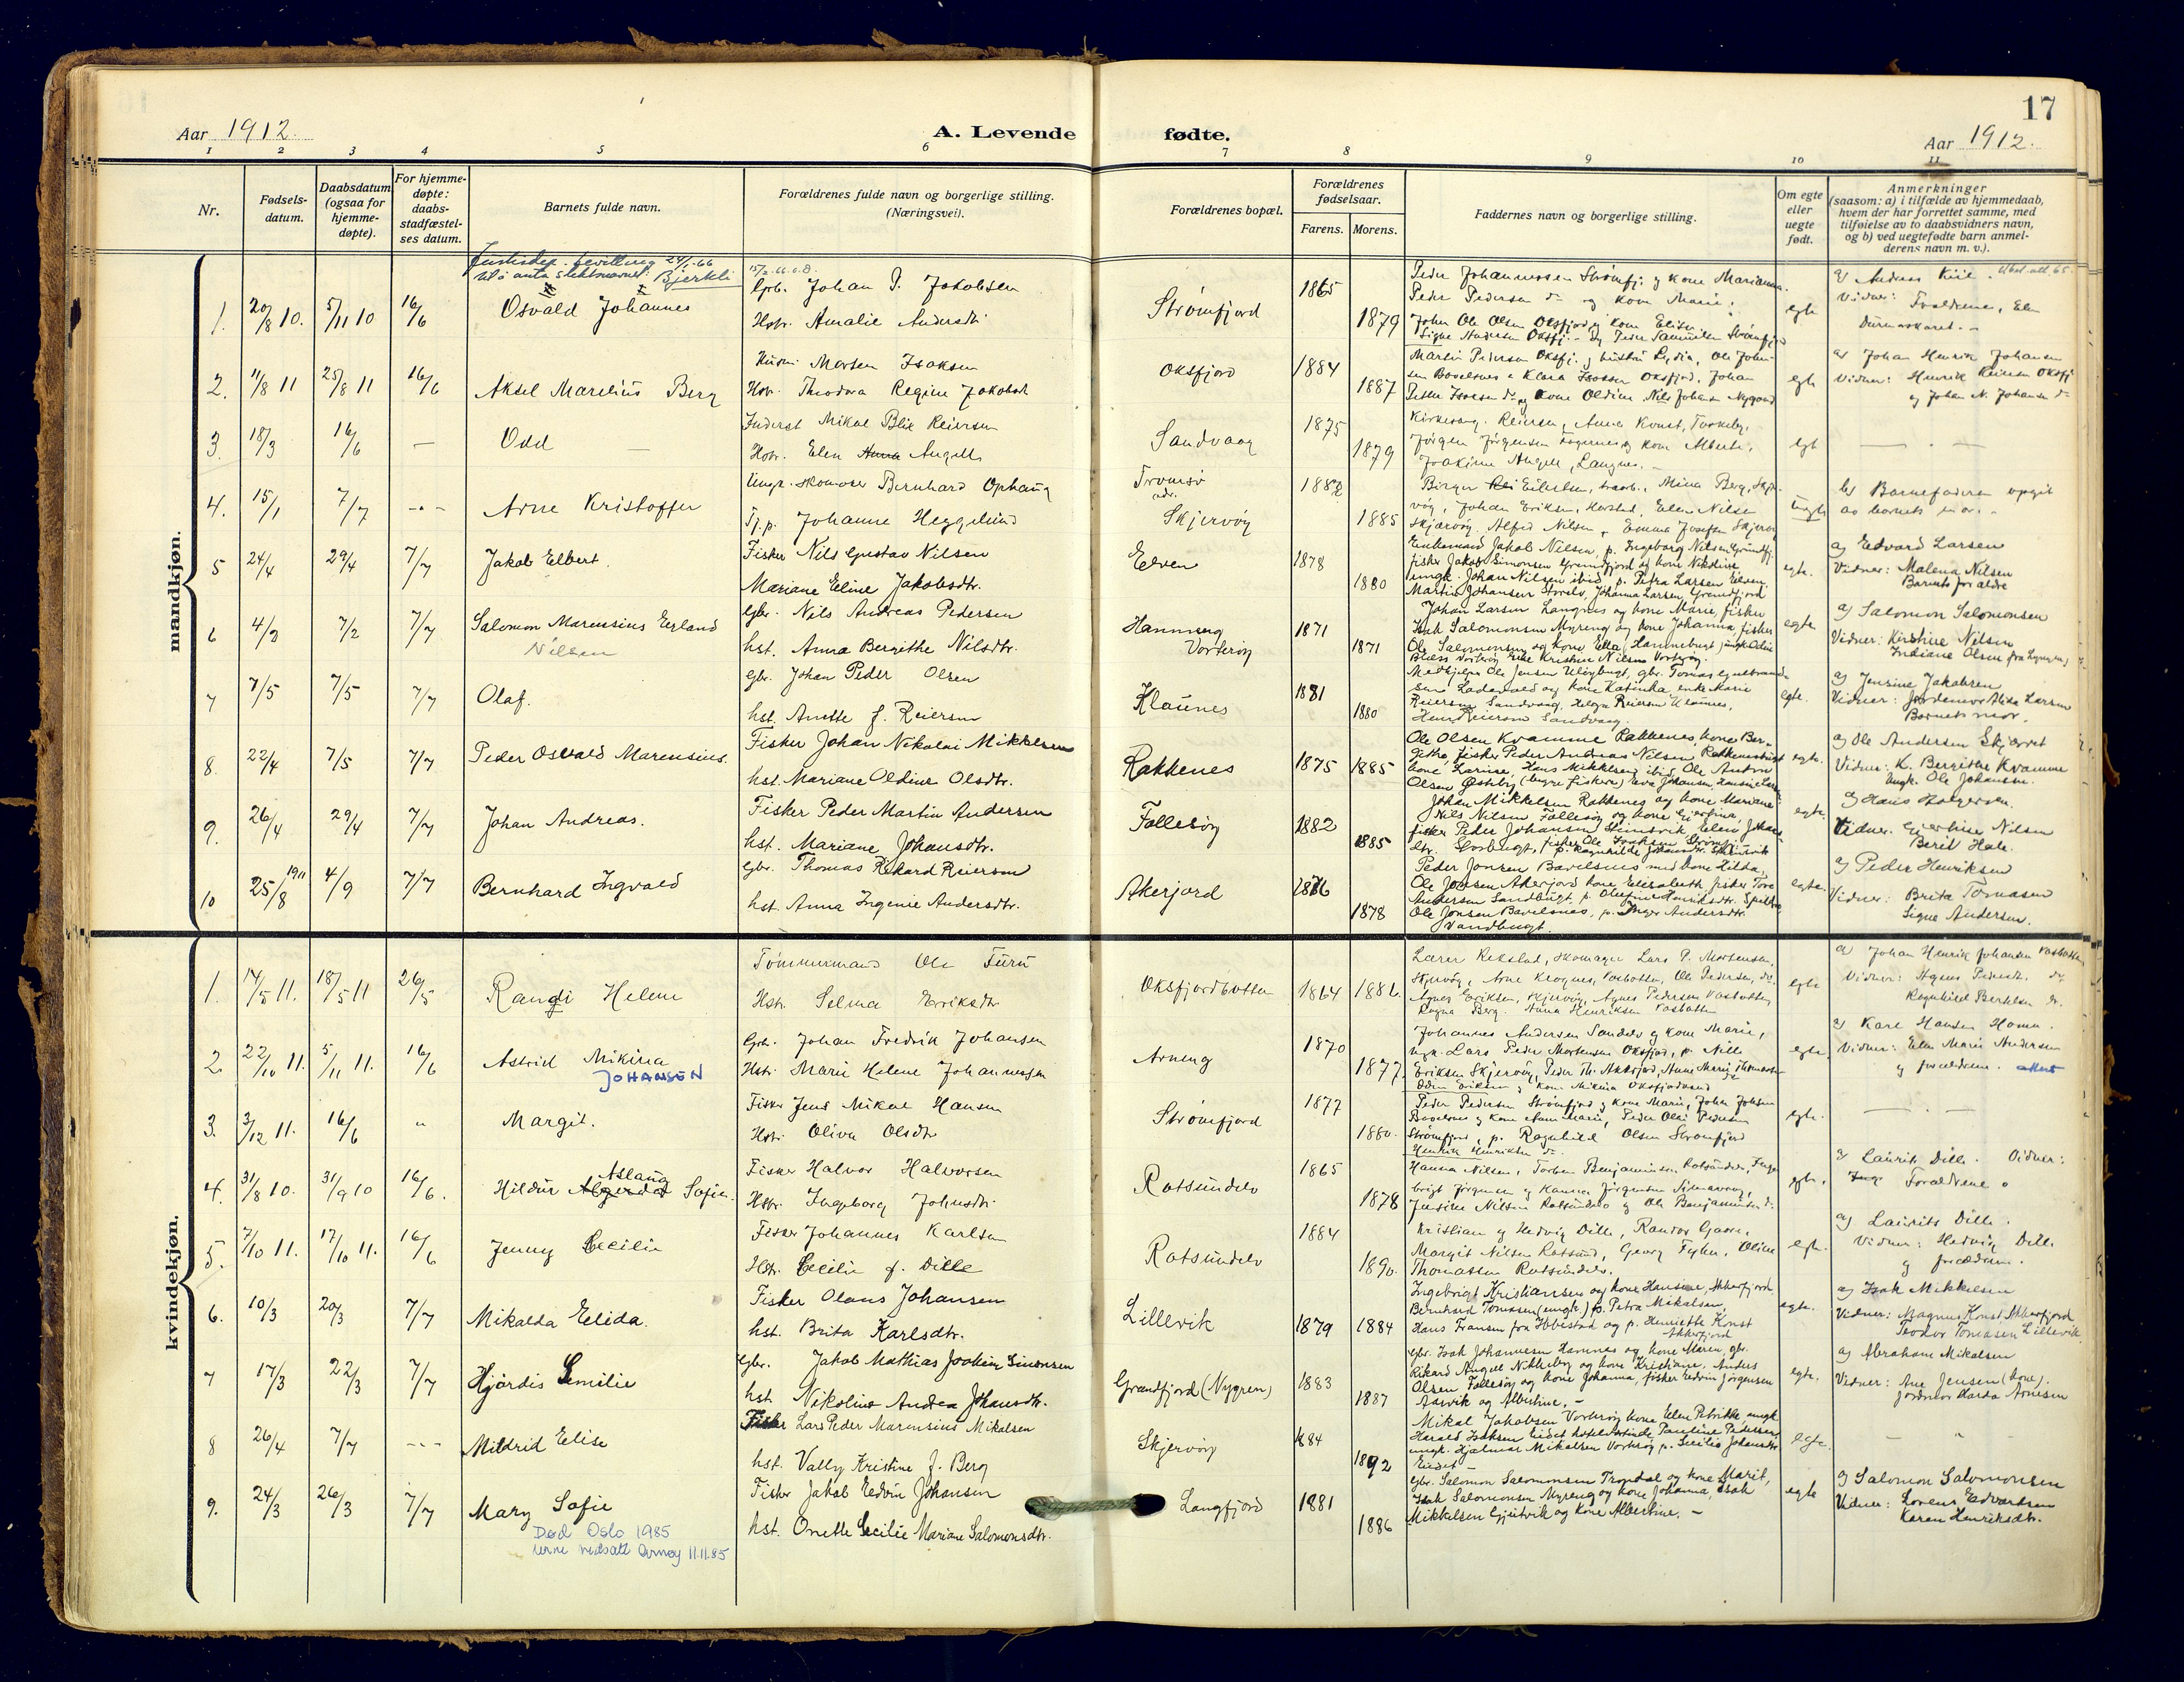 17
Aar 1912.
A. Levende fødte.
Aar 1912.
1 2 3 4 5 6 7 8 9 10 11
Nr.
Fødsels-
datum.
Daabsdatum
(ogsaa for
hjemme-
døpte).
For hjemme-
døpte:
daabs-
stadfæstel-
ses datum.
Barnets fulde navn.
Forældrenes fulde navn og borgerlige stilling.
(Næringsvei).
Forældrenes bopæl.
Forældrenes
fødselsaar.
Farens. Morens.
Faddernes navn og borgerlige stilling.
Om egte
eller
uegte
født.
Anmerkninger
(saasom: a) i tilfælde av hjemmedaab,
hvem der har forrettet samme, med
tilføielse av to daabsvidners navn,
og b) ved uegtefødte barn anmel-
derens navn m. v.).
mandkjøn.
Justisdep. bevilling 24/1-66
til å anta slektsnavnet: Bjerkli
1. 20/8 10. 5/11 10 16/6 Osvald Johannes
Grb. Johan P. Jakobsen
Hstr. Amalie Andersdtr
Strømfjord 1865 1879
Peder Johannessen Strømfj. og kone Marianna.
Peder Pedersen do og kone Marie,
John Ole Olsen Oksfjord og kone Elise
egte
a) Andreas Kiil
Vidner: Forældrene, Elen
2. 11/8 11 25/8 11 16/6 Aksel Marelius Berg
Morten Isaksen
Hstr. Theodora Regine Jakobsdtr
Oksfjord 1884 1887
Martin Pedersen Oksfj. og hustru Lydia, Ole John-
sen Bavelsnes & Klara Isaksen Oksfjord, Johan
Petter Isaksen do og kone Oldine Nils Johan Nygaard
egte
a) Johan Henrik Johansen
Vidner: Henrik Reiersen Oksfj
og Johan N. Johansen do
3. 18/3 16/6 — Odd —
Inderst Mikal Blix Reiersen
Hstr. Elen Anna Angell
Sandvaag 1875 1879
Kirkesang. Reiersen, Anna Konst,
Jørgen Jørgensen og kone Alberte,
Joakime Angell, Langnes. —
egte — . —
4. 15/1 7/7 -.- Arne Kristoffer
Ungk. skomaker Bernhard Ophaug
Tj.p. Johanne Heggelund
Tromsø
adr.
Skjervøy 1882 1885
Birger Eilertsen, Mina Berg, Skjer-
vøy, Johan Eriksen, Havstad, Elen Nilsen
Skjærvøy, Alfred Nilsen, Emma Josefsen Skjervø
uegte
b) Barnefaderen opgit
av barnets mor. -
5 24/4 29/4 7/7 Jakob Elbert.
Fisker Nils Gustav Nilsen
Mariane Eline Jakobsdtr.
Elven 1878 1880
Enkemand Jakob Nilsen, p. Ingeborg Nilsen Grundfj.
fisker Jakob Simonsen Grundfjord og kone Nikoline,
ungk. Johan Nilsen ibid, p. Petra Larsen Elven,
Martin Johansen Storslv, Johanna Larsen, Grundfjord
egte.
a) Edvard Larsen
Vidner: Malena Nilsen
Barnets forældre
6 4/2 7/2 7/7 Salomon Marensius Erland
Nilsen
Gbr. Nils Andreas Pedersen
hst. Anna Bergithe Nilsdtr.
Hamneng
Vorterøy 1871 1871
Johan Larsen Langnes og kone Marie, fisker
Isak Salomonsen Myreng og kone Johanna, fisker
Ole Salomonsen og kone Ella, Hamnebugt,
egte
a) Salomon Salomonsen
Vidner: Kirstine Nilsen
Indiane Olsen fra Lyngen
7 7/5 7/5 7/7 Olaf.
Gbr. Johan Peder Olsen
hst. Anette f. Reiersen
Klaunes 1881 1880
Medhjelper Ole Jensen Uløybugt, gbr. Tomas
sen Ladevold og kone Katinka, enke Marie
Reiersen Sandvaag, Helga Reiersen Klaunes,
Reiersen Sandvaag.
egte.
a) Jensine Jakobsen
Vidner: Jordemor Alida Larsen
Barnets mor.
8. 22/4 7/5 7/7 Peder Osvald Marensius.
Fisker Johan Nikolai Mikkelsen
hst. Mariane Oldine Olsdtr.
Rakkenes 1875 1885
Ole Olsen Kvamme Rakkenes, kone Ber-
githe, fisker Peder Andreas Nilsen, Rakkenesbugt
kone Karine, Hans Mikkelsen ibid, Ole Anton
egte.
a) Ole Andersen Skjærvet
Vidner: K. Bergithe Kvamme
Ungk. Ole Johansen.
9. 26/4 29/4 7/7 Johan Andreas.
Fisker Peder Martin Andersen
hst. Mariane Johansdtr.
Follesøy 1882 1885
Johan Mikkelsen Rakkenes og kone Mariane
Nils Nilsen Follesøy og kone Gjertine,
egte.
a) Hans Holgersen.
Vidner. Gjertine Nilsen
Berit Hals.
10 1911 25/8 4/9 7/7 Bernhard Ingvald
Gbr. Thomas Rikard Reiersen
hst. Anna Ingenie Andersdtr.
Akerfjord 1876 1878
Peder Jonsen Bavelsnes med kone Hilda,
Ole Jonsen Akerfjord kone Elisabeth, fisker Tore
Andersen Sandbugt, p. Olufine Henriksdtr.
Ole Jonsen Bavelsnes, p. Inger Andersdtr.
Vandbugt.
egte
a) Peder Henriksen
Vidner: Brita Tomasen
Signe Andersen.
kvindekjøn.
1. 14/5 11. 18/5 11 26/5 Randi Helene
Tømmermand Ole Furu
Hstr. Selma Eriksdtr
Oksfjordbotten 1864 1886.
Lærer Rekstad, skomager Lars P. Mortensen,
Skjervøy, Arne Krognes, Vasbotten, Ole Pedersen, do,
Agnes Eriksen, Skjervøy, Agnes Pedersen Vasbotten
Ragna Berg. Anna Henriksen Vasbotten
egte
a) Johan Henrik Johansen Vasbotten
Vidner: Agnes Pedersdtr. do
Ragnhild Bertelsen do.
2. 22/10 11. 5/11 11. 16/6 Astrid Mikina
JOHANSEN
Grb. Johan Fredrik Johansen
Hstr. Marie Helene Johannessen
Arneng 1870 1877.
Johannes Andersen Sandelv og kone Marie,
ungk. Lars Peder Mortensen Oksfjord, p. Nille
Eriksen Skjervøy, Peder Th. Akkrfjord, Anne Marie Thomasdtr
Odin Eriksen og kone Mikina Oksfjordvand
egte
a) Karl Hansen Hamn.
Vidner: Elen Marie Andersen
og forældrene.
3. 3/12 11. 16/6 " Margit.
Fisker Jens Mikal Hansen
Hstr. Oliva Olsdtr
Strømfjord 1877 1880.
Peder Pedersen Strømfjord og kone Marie, Johan Johnsen
Bavelnes og kone Anne Marie, Peder Olai Pedersen
Strømfjord, p. Ragnhild Olsen Strømfjord
Henrik Henriksen do.
egte. — . —
4. 31/8 10. 31/9 10 16/6. Hildur Aslaug Sofie.
Fisker Halvor Halvorsen
Hstr. Ingeborg Johnsdtr
Rotsundelv 1865 1878
Hanna Nilsen, Torben Benjaminsen Rotsundelv, Inge-
brigt Jørgensen og Hanna Jørgensen
Jensine Nilsen Rotsundelv og Ole Benjaminsen do.
egte.
a) Laurits Dille. Vidner:
Forældrene
5. 7/10 11. 17/10 11. 16/6 Jenny Cecilie
Fisker Johannes Karlsen
Hstr. Cecilie f. Dille
Rotsundelv 1884 1890.
Kristian og Hedvig Dille, Randor Gaare,
Margit Nilsen Rotsund, Georg Fyhn, Oline
Thomassen Rotsundelv.
egte.
a) Laurits Dille.
Vidner: Hedvig Dille
og forældrene.
6. 10/3 20/3 7/7 Mikalda Elida.
Fisker Olaus Johansen
hst. Brita Karlsdtr.
Lillevik 1879 1884
Ingebrigt Kristiansen og kone Hansine, Akkarfjord
Bernhard Tomassen (ungk.) p. Petra Mikalsen,
Hans Fransen fra Ibbestad og p. Henriette Konst
Akkarfjord
egte.
a) Isak Mikkelsen
Vidner: Magnus Konst Akkarfjord
Teodor Tomasen Lillevik
7 17/3 22/3 7/7 Hjørdis Emilie
Gbr. Jakob Mathias Joakim Simonsen
hst. Nikoline Andrea Johansdtr.
Grundfjord (Nygren) 1883 1887
Gbr. Isak Johannesen Hamnes og kone Maren, gbr.
Rikard Angell Nikkeby og kone Kristiane, Anders
Olsen Follesøy og kone Johanna, fisker Edvin Jørgensen
Aarvik og Albertine. -
egte.
a) Abraham Mikalsen
Vidner: Ane Jensen (kone).
jordmor Harda Arnesen
8 26/4 7/7 --- Mildrid Elise
Fisker Lars Peder Marensius Mikalsen
hst. Vally Kristine f. Berg
Skjervøy 1884 1892
Mikal Jakobsen Vorterøy kone Elen Petrikke, ungk.
Harald Isaksen Eidet hotelvertinde Pauline Pedersen,
ungk. Hjalmar Mikalsen Vorterøy p. Cecilie Johansdtr
Eidet -
egte - " -
9. 24/3 26/3 7/7 Mary Sofie
Død Oslo 1985
urne nedsatt Arnøy 11.11.85
Fisker Jakob Edvin Johansen
hst. Onette Cecilie Mariane Salomonsdtr.
Langfjord 1881 1886
Gbr. Salomon Salomonsen Trondal og kone Marit,
Isak Salomonsen Myreng og kone Johanna, Isak
Mikkelsen Gjutvik og kone Albertine. -
egte
a) Salomon Salomonsen
Vidner: Lorens Edvardsen
Karen Henriksdtr.